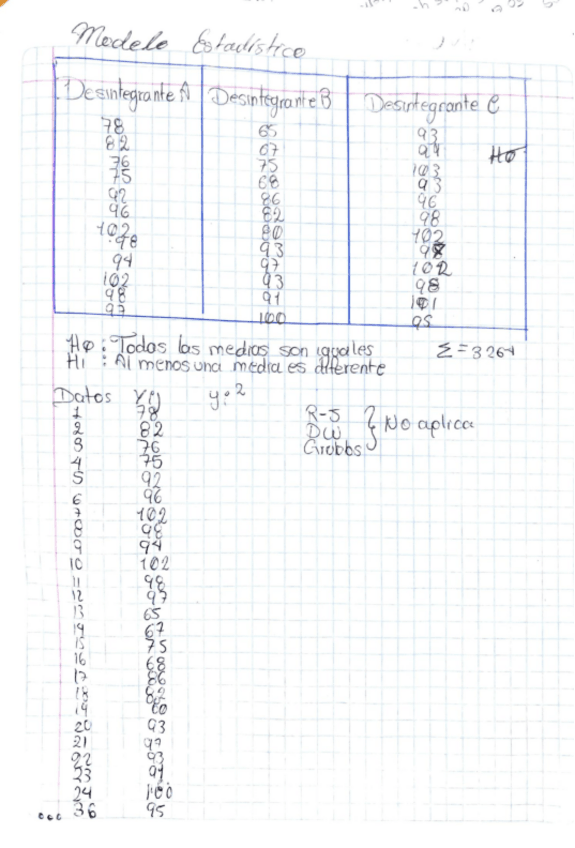 Modelo Estadístico
Desintegrante A Desintegrante B Desintegrante C
78 65 93
82 67 94
76 75 103
75 68 93
92 86 96
96 82 98
102 80 102
98 93 98
94 97 102
102 93 98
98 91 101
97 100 95
Hø
Hø : Todas las medias son iguales
Σ = 3264
H1 : Al menos una media es diferente
Datos Yij yi²
1 78
2 82
3 76
4 75
5 92
6 96
7 102
8 98
9 94
10 102
11 98
12 97
13 65
14 67
15 75
16 68
17 86
18 82
19 80
20 93
21 97
22 93
23 91
24 100
... 36 95
R-J
DW
Grobbs
No aplica